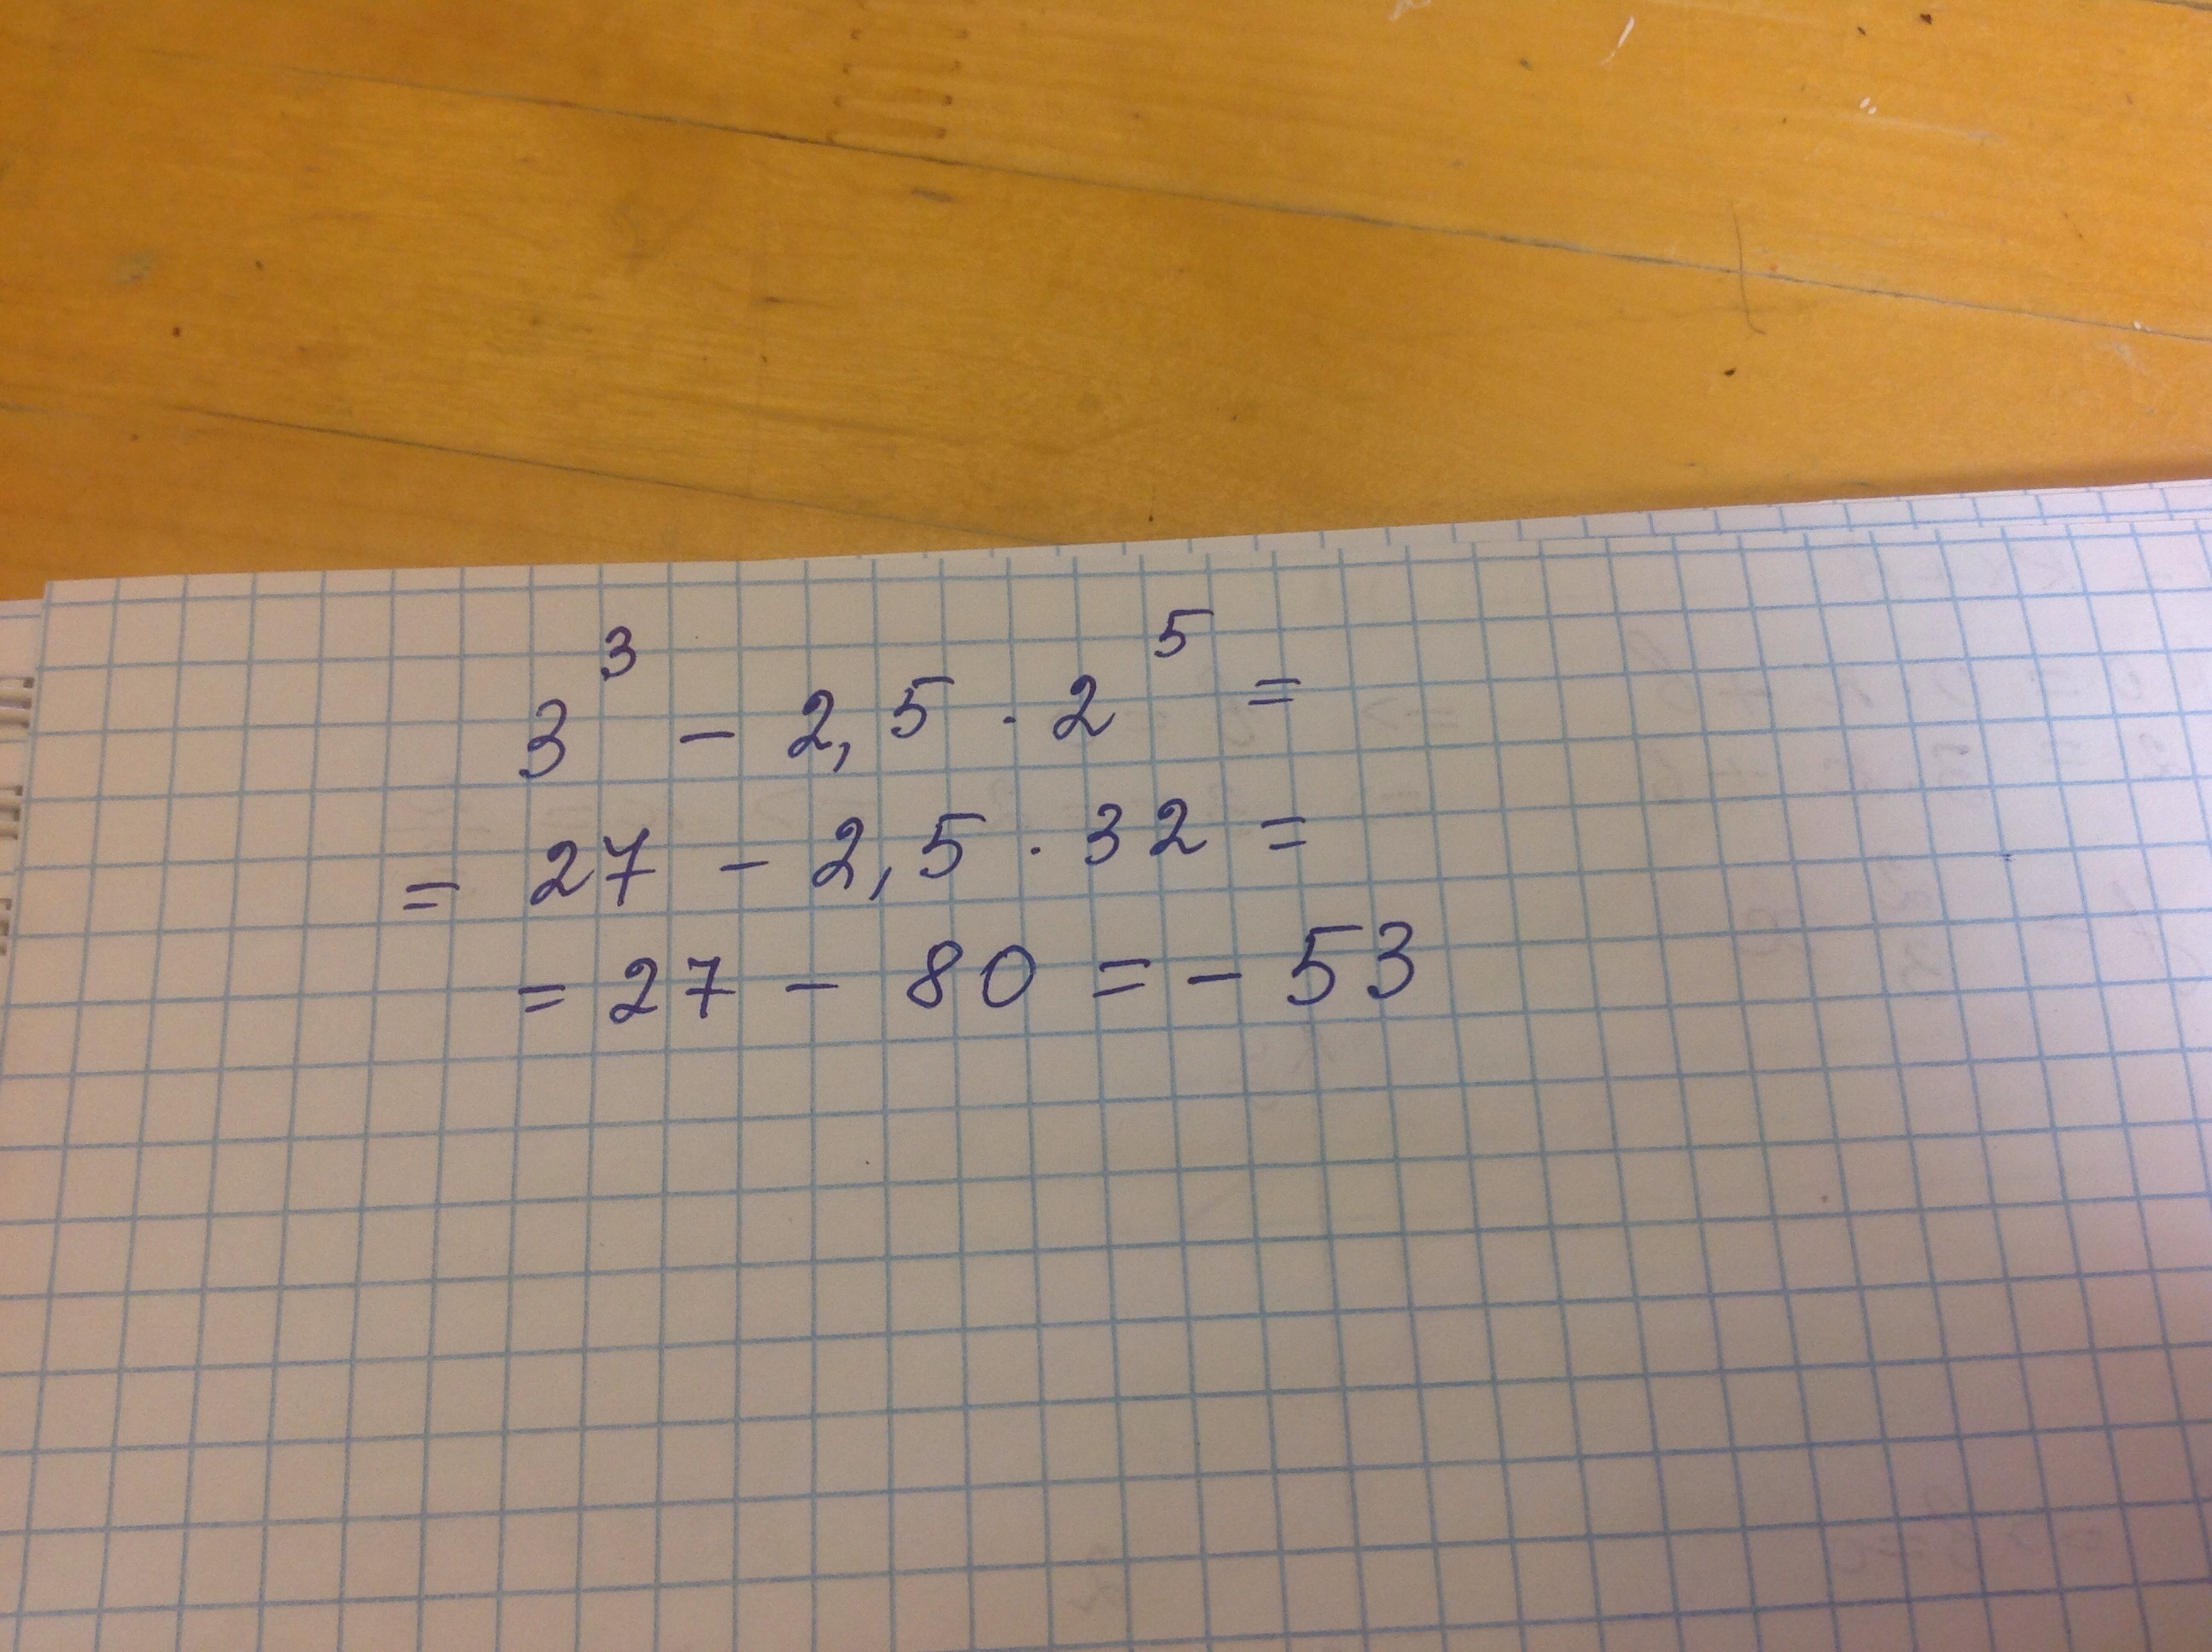 3³ - 2,5 · 2⁵ =
= 27 - 2,5 · 32 =
= 27 - 80 = - 53